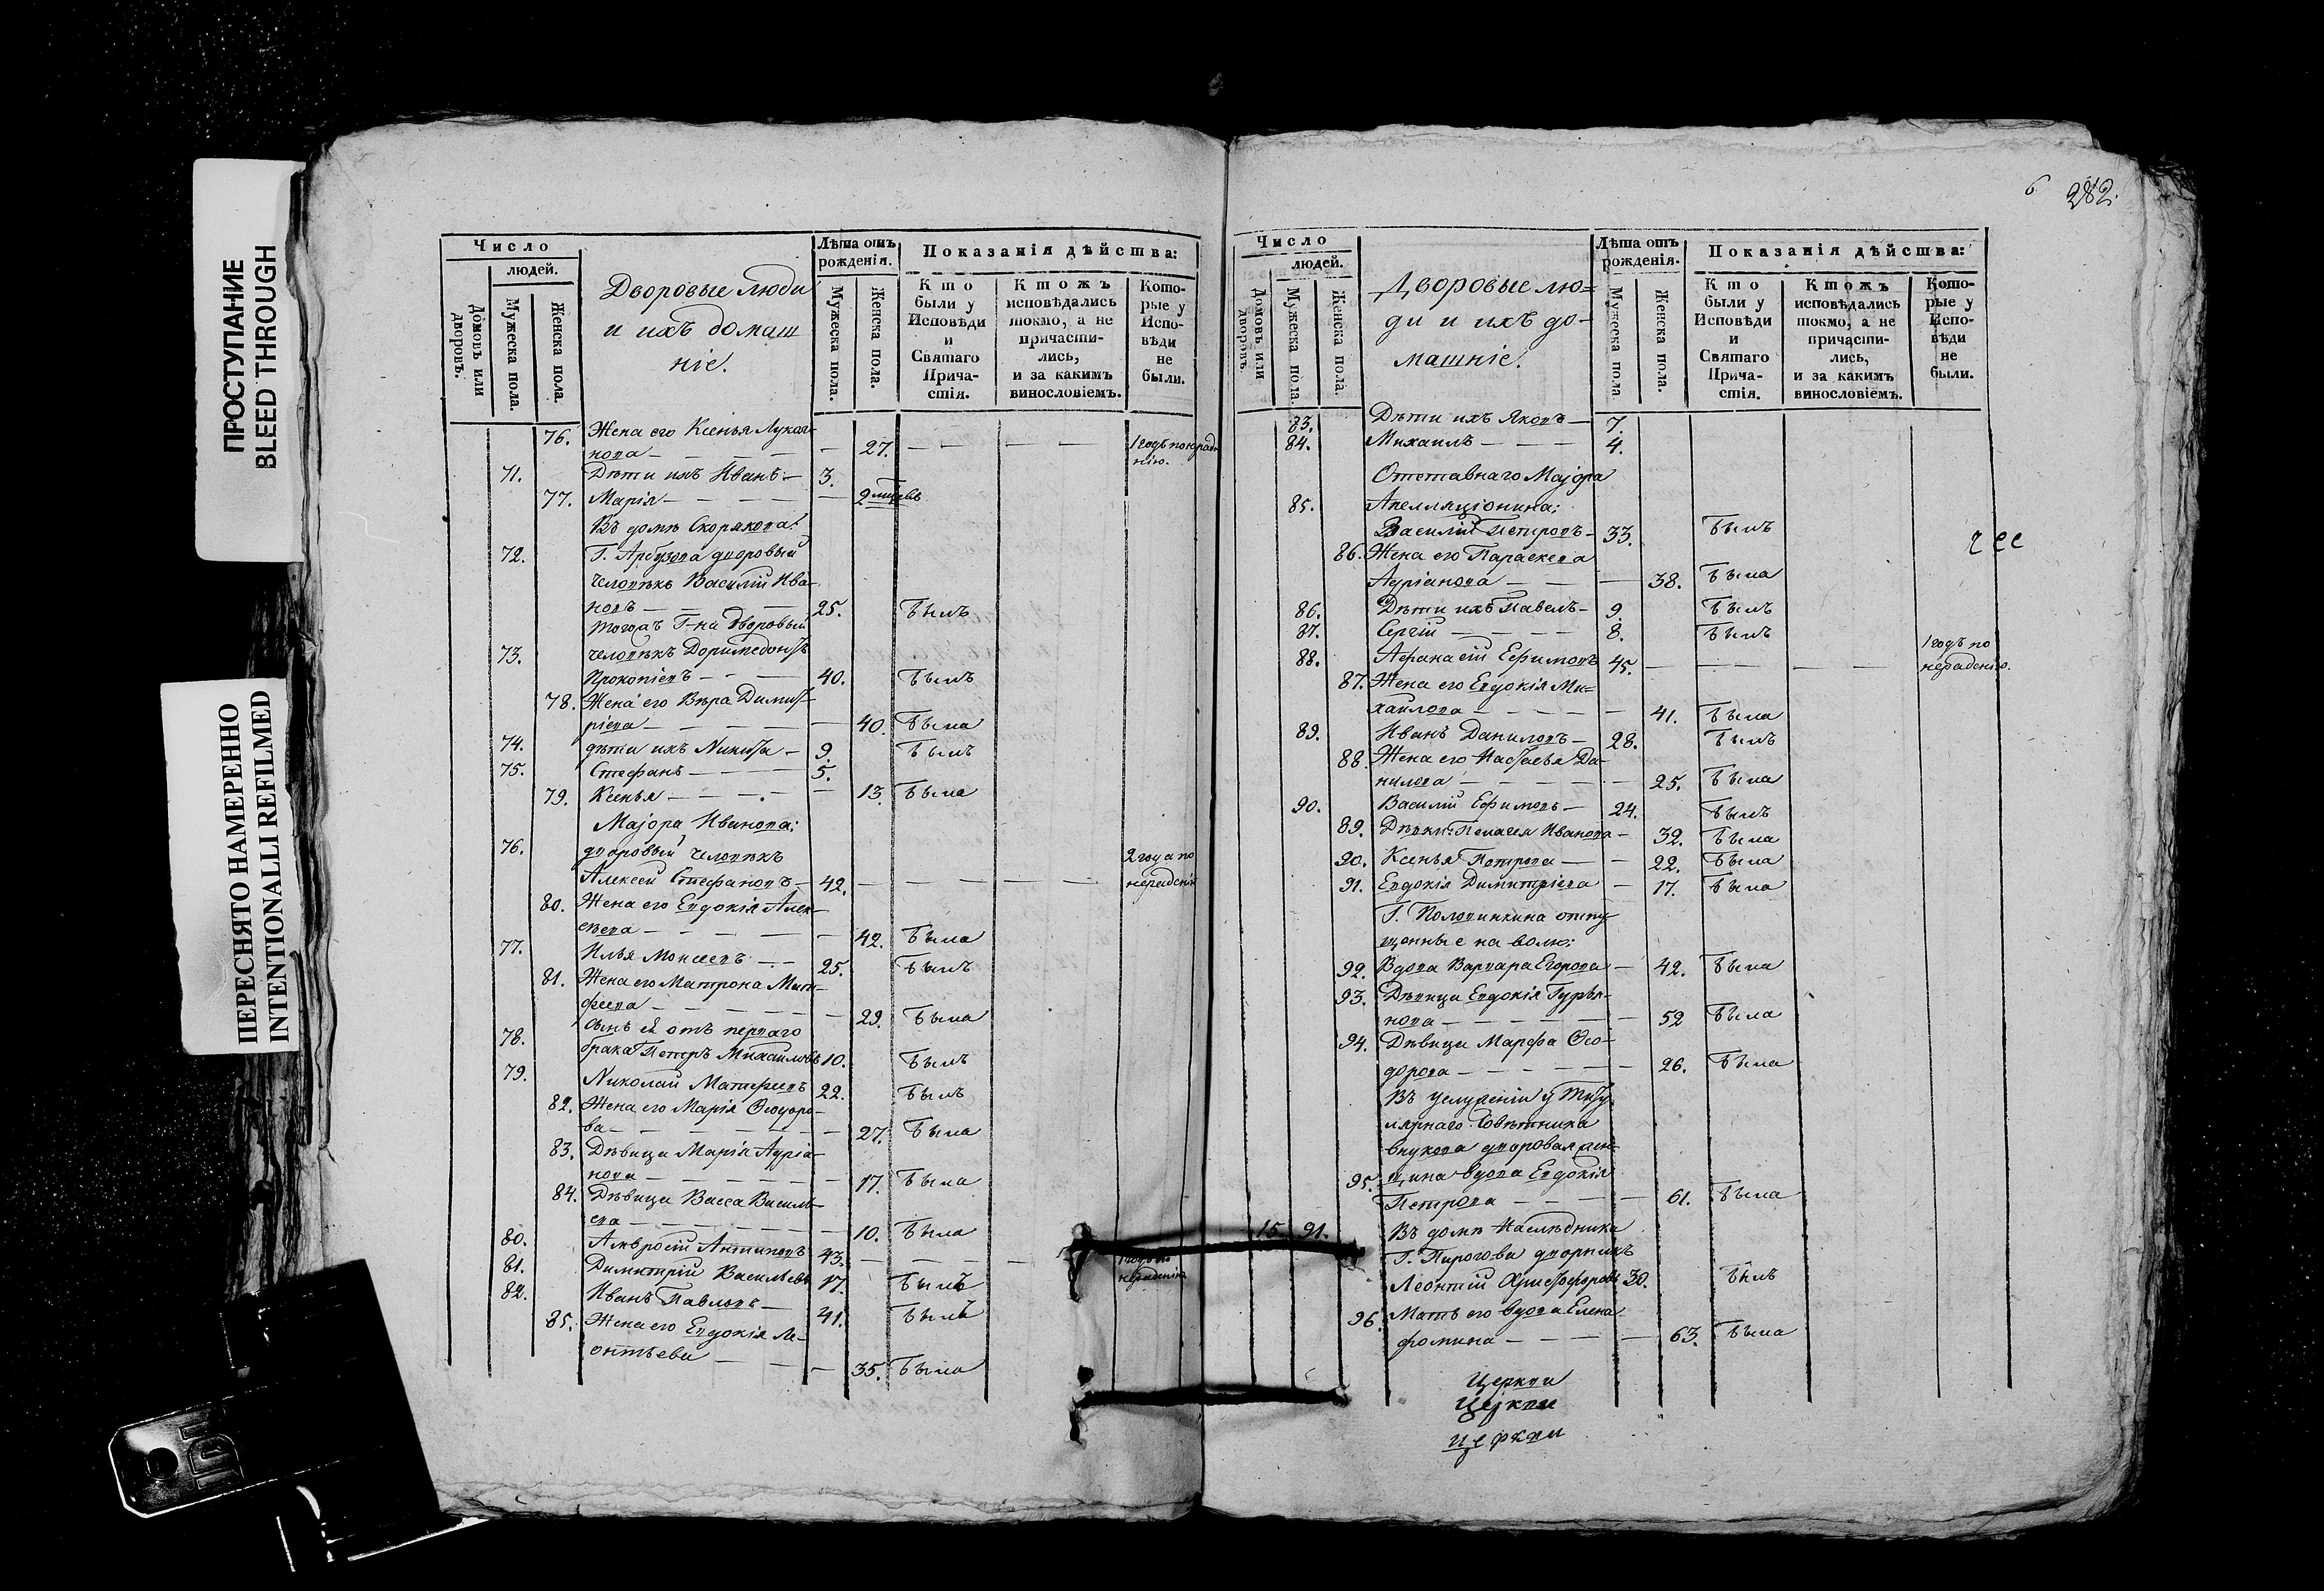 ПРОСТУПАНИЕ
BLEED THROUGH
ПЕРЕСНЯТО НАМЕРЕННО
INTENTIONALLI REFILMED
Число
людей.
Домовъ или дворовъ.
Мужеска пола.
Женска пола.
Дворовые люди
и ихъ домаш
ніе.
Лѣта отъ
рожденія.
Мужеска пола.
Женска пола.
Показанія дѣйства:
Кто
были у
Исповѣди
и
Святаго
Прича-
стія.
Ктожъ
исповѣдались
токмо, а не
причасти-
лись,
и за какимъ
винословіемъ.
Кото-
рые у
Испо-
вѣди
не
были.
76. Жена его Ксенья
нова — 27. — — — —
71. Дѣти ихъ Иванъ — 3.
77. Марія — — — — 2
Въ домѣ Скорякова:
72. Г. Арбузова дворовый
человѣкъ Василій Ива-
новъ — — 25. Былъ
Тогожъ Г-на дворовый
73. человѣкъ Доримедонтъ
Прокопіевъ — — 40. Былъ
78. Жена его Вѣра Димит-
ріева — — — 40. Была
74. дѣти ихъ Никита — 9. Былъ
75. Стефанъ — — — 5.
79. Ксенья — — — — 13. Была
Маіора Иванова:
76. дворовый человѣкъ 2 года по
Алексей Стефановъ — 42. — — — — — нерадѣнію
80. Жена его Евдокія Алек-
сѣева — — — — 42. Была
77. Илья Моисеевъ — — 25. Былъ
81. Жена его Матрона Мат-
феева — — — — 29. Была
78. Сынъ ея отъ перваго
брака Петръ Михайловъ 10. Былъ
79. Николай Матфеевъ 22. Былъ
82. Жена его Марія Ѳеодоро-
ва — — — — 27. Была
83. Дѣвица Марія Адріа-
нова — — — — 17. Была
84. Дѣвица Васса Василь-
ева — — — — 10. Была
80. Амвросій Антиповъ 43. — — — —
нерадѣнію
81. Димитрій Васильевъ 17. Былъ
82. Иванъ Павловъ — 41. Былъ
85. Жена его Евдокія Ле-
онтьева — — — 35. Была
6 282.
Число
людей.
Домовъ или дворовъ.
Мужеска пола.
Женска пола.
Дворовые лю=
ди и ихъ до-
машніе.
Лѣта отъ
рожденія.
Мужеска пола
Женска пола.
Показанія дѣйства:
Кто
были у
Исповѣди
и
Святаго
Прича-
стія.
Ктожъ
исповѣдались
токмо, а не
причасти-
лись,
и за какимъ
винословіемъ.
Кото-
рые у
Испо-
вѣди
не
были.
83. Дѣти ихъ Яковъ — 7.
84. Михаилъ — — — 4.
Отставнаго Маіора
85. Апелляціонина:
Василій Петровъ — 33. Былъ
86. Жена его Параскева
Адріанова — — — 38. Была
86. Дѣти ихъ Павелъ — 9. Былъ
87. Сергій — — — — 8. Былъ
88. Афанасій Ефимовъ 45. — — — — — 1 годъ по
нерадѣнію.
87. Жена его Евдокія Ми=
хайлова — — — — 41. Была
89. Иванъ Даниловъ — 28. Былъ
88. Жена его Настасья Да-
нилова — — — — 25. Была
90. Василій Ефимовъ — 24. Былъ
89. Дѣвки: Пелагея Иванова — 32. Была
90. Ксенья Петрова — — 22. Была
91. Евдокія Димитріева — 17. Была
Г. Половинкина отпу-
щенные на волю:
92. Вдова Варвара Егорова — 42. Была
93. Дѣвица Евдокія Гурья-
нова — — — — 52 Была
94. Дѣвица Марфа Ѳео-
дорова — — — — 26. Была
Въ услуженіи у Титу-
лярнаго Совѣтника
Внукова дворовая жен-
95. щина вдова Евдокія
Петрова — — — — 61. Была
15 91. Въ домѣ Наслѣдника
Г. Пирогова дворникъ
Леонтій Христофоровъ 30. Былъ
96. Мать его вдова Елена
Фомина — — — — 63. Была
Церкви
Церкви
Церкви